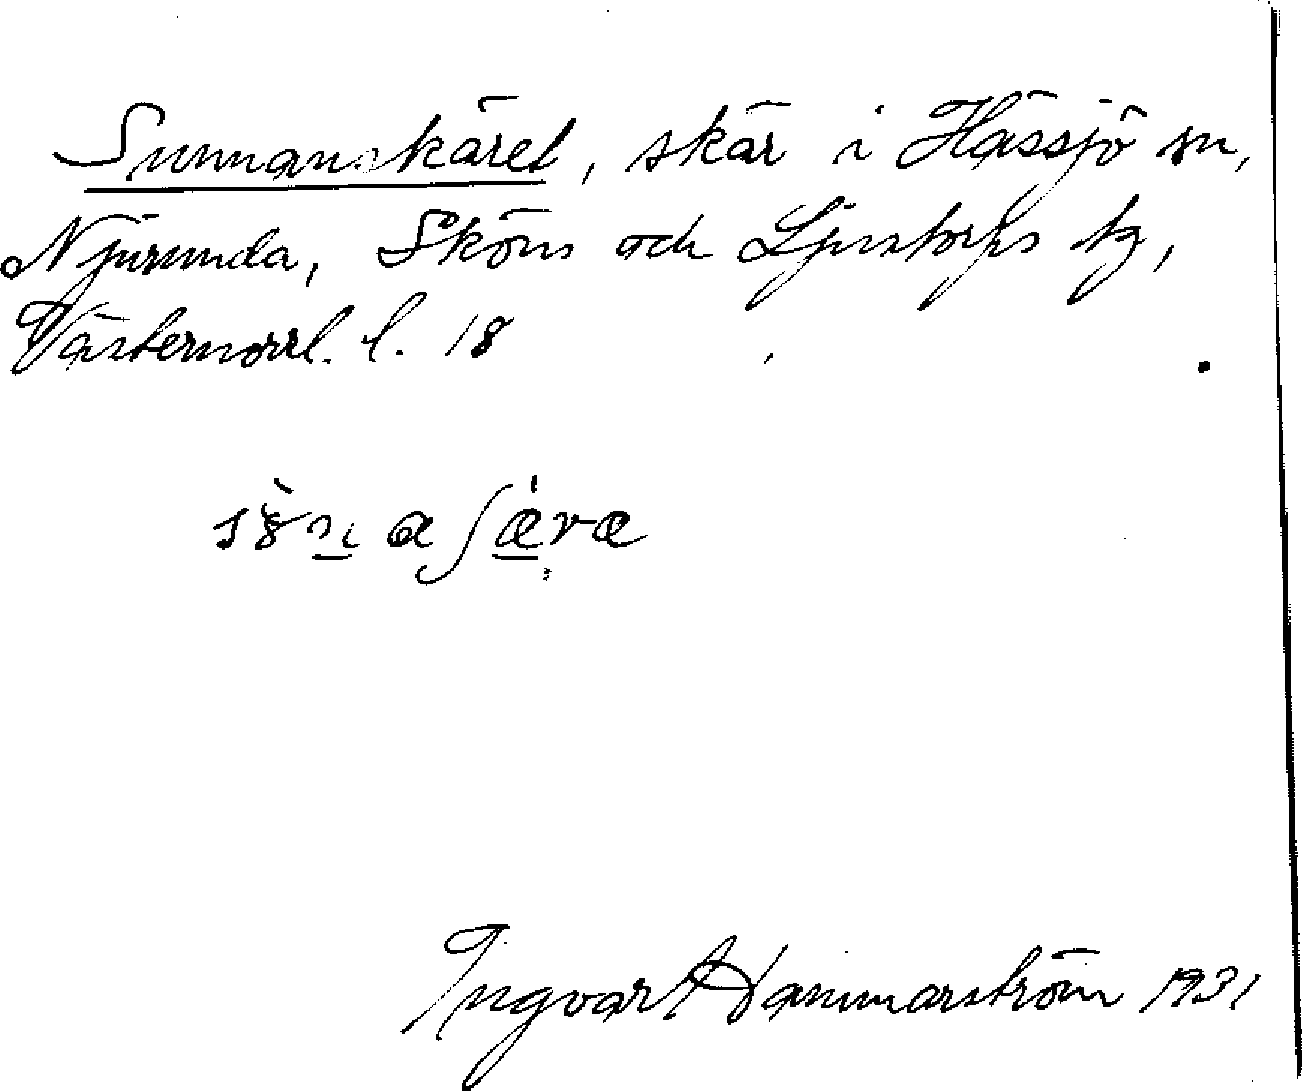 Sunnanskäret, skär i Hässjö sn,
Njurunda, Sköns och Ljustorps tg,
Västernorrl. l. 18
Ingvar Hammarström 1931